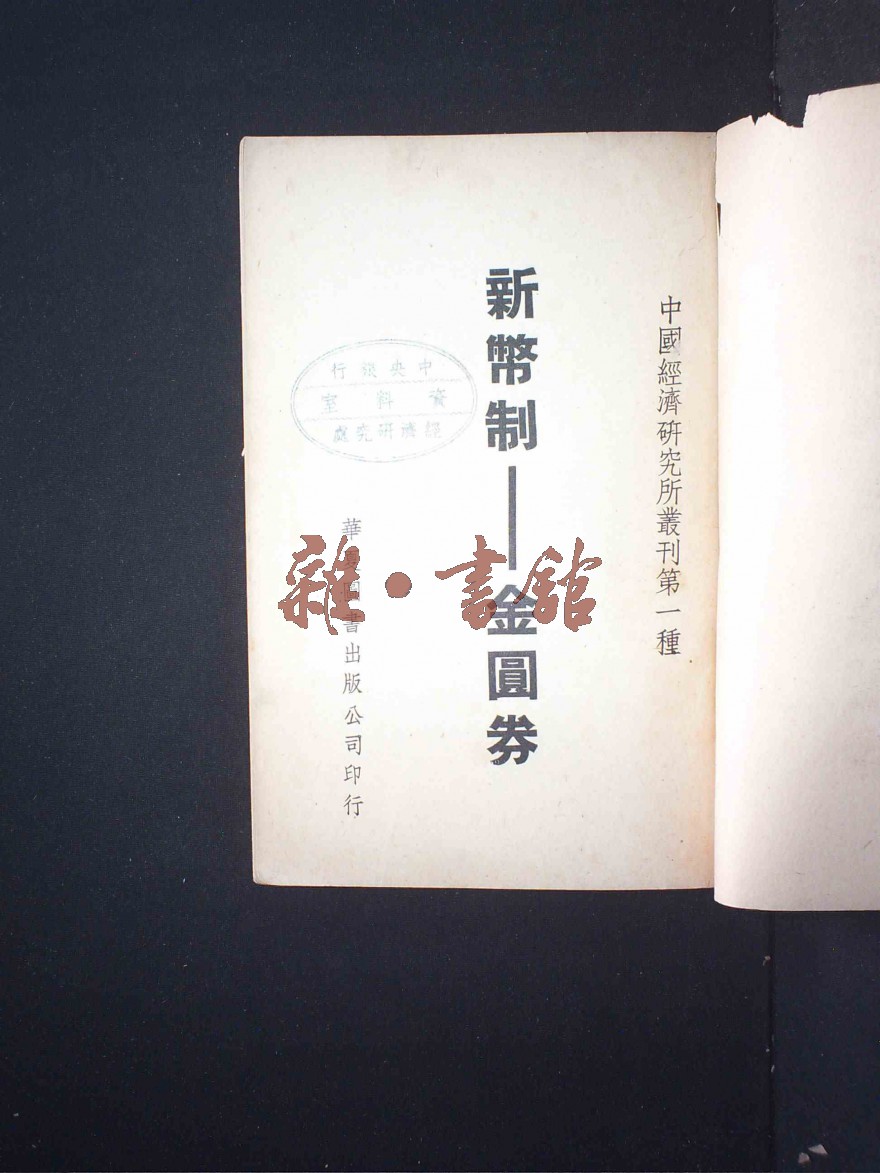 中國經濟硏究所叢刊第一種
新幣制——金圓券
中央銀行
資料室
經濟研究處
華夏圖書出版公司印行
雜·書館